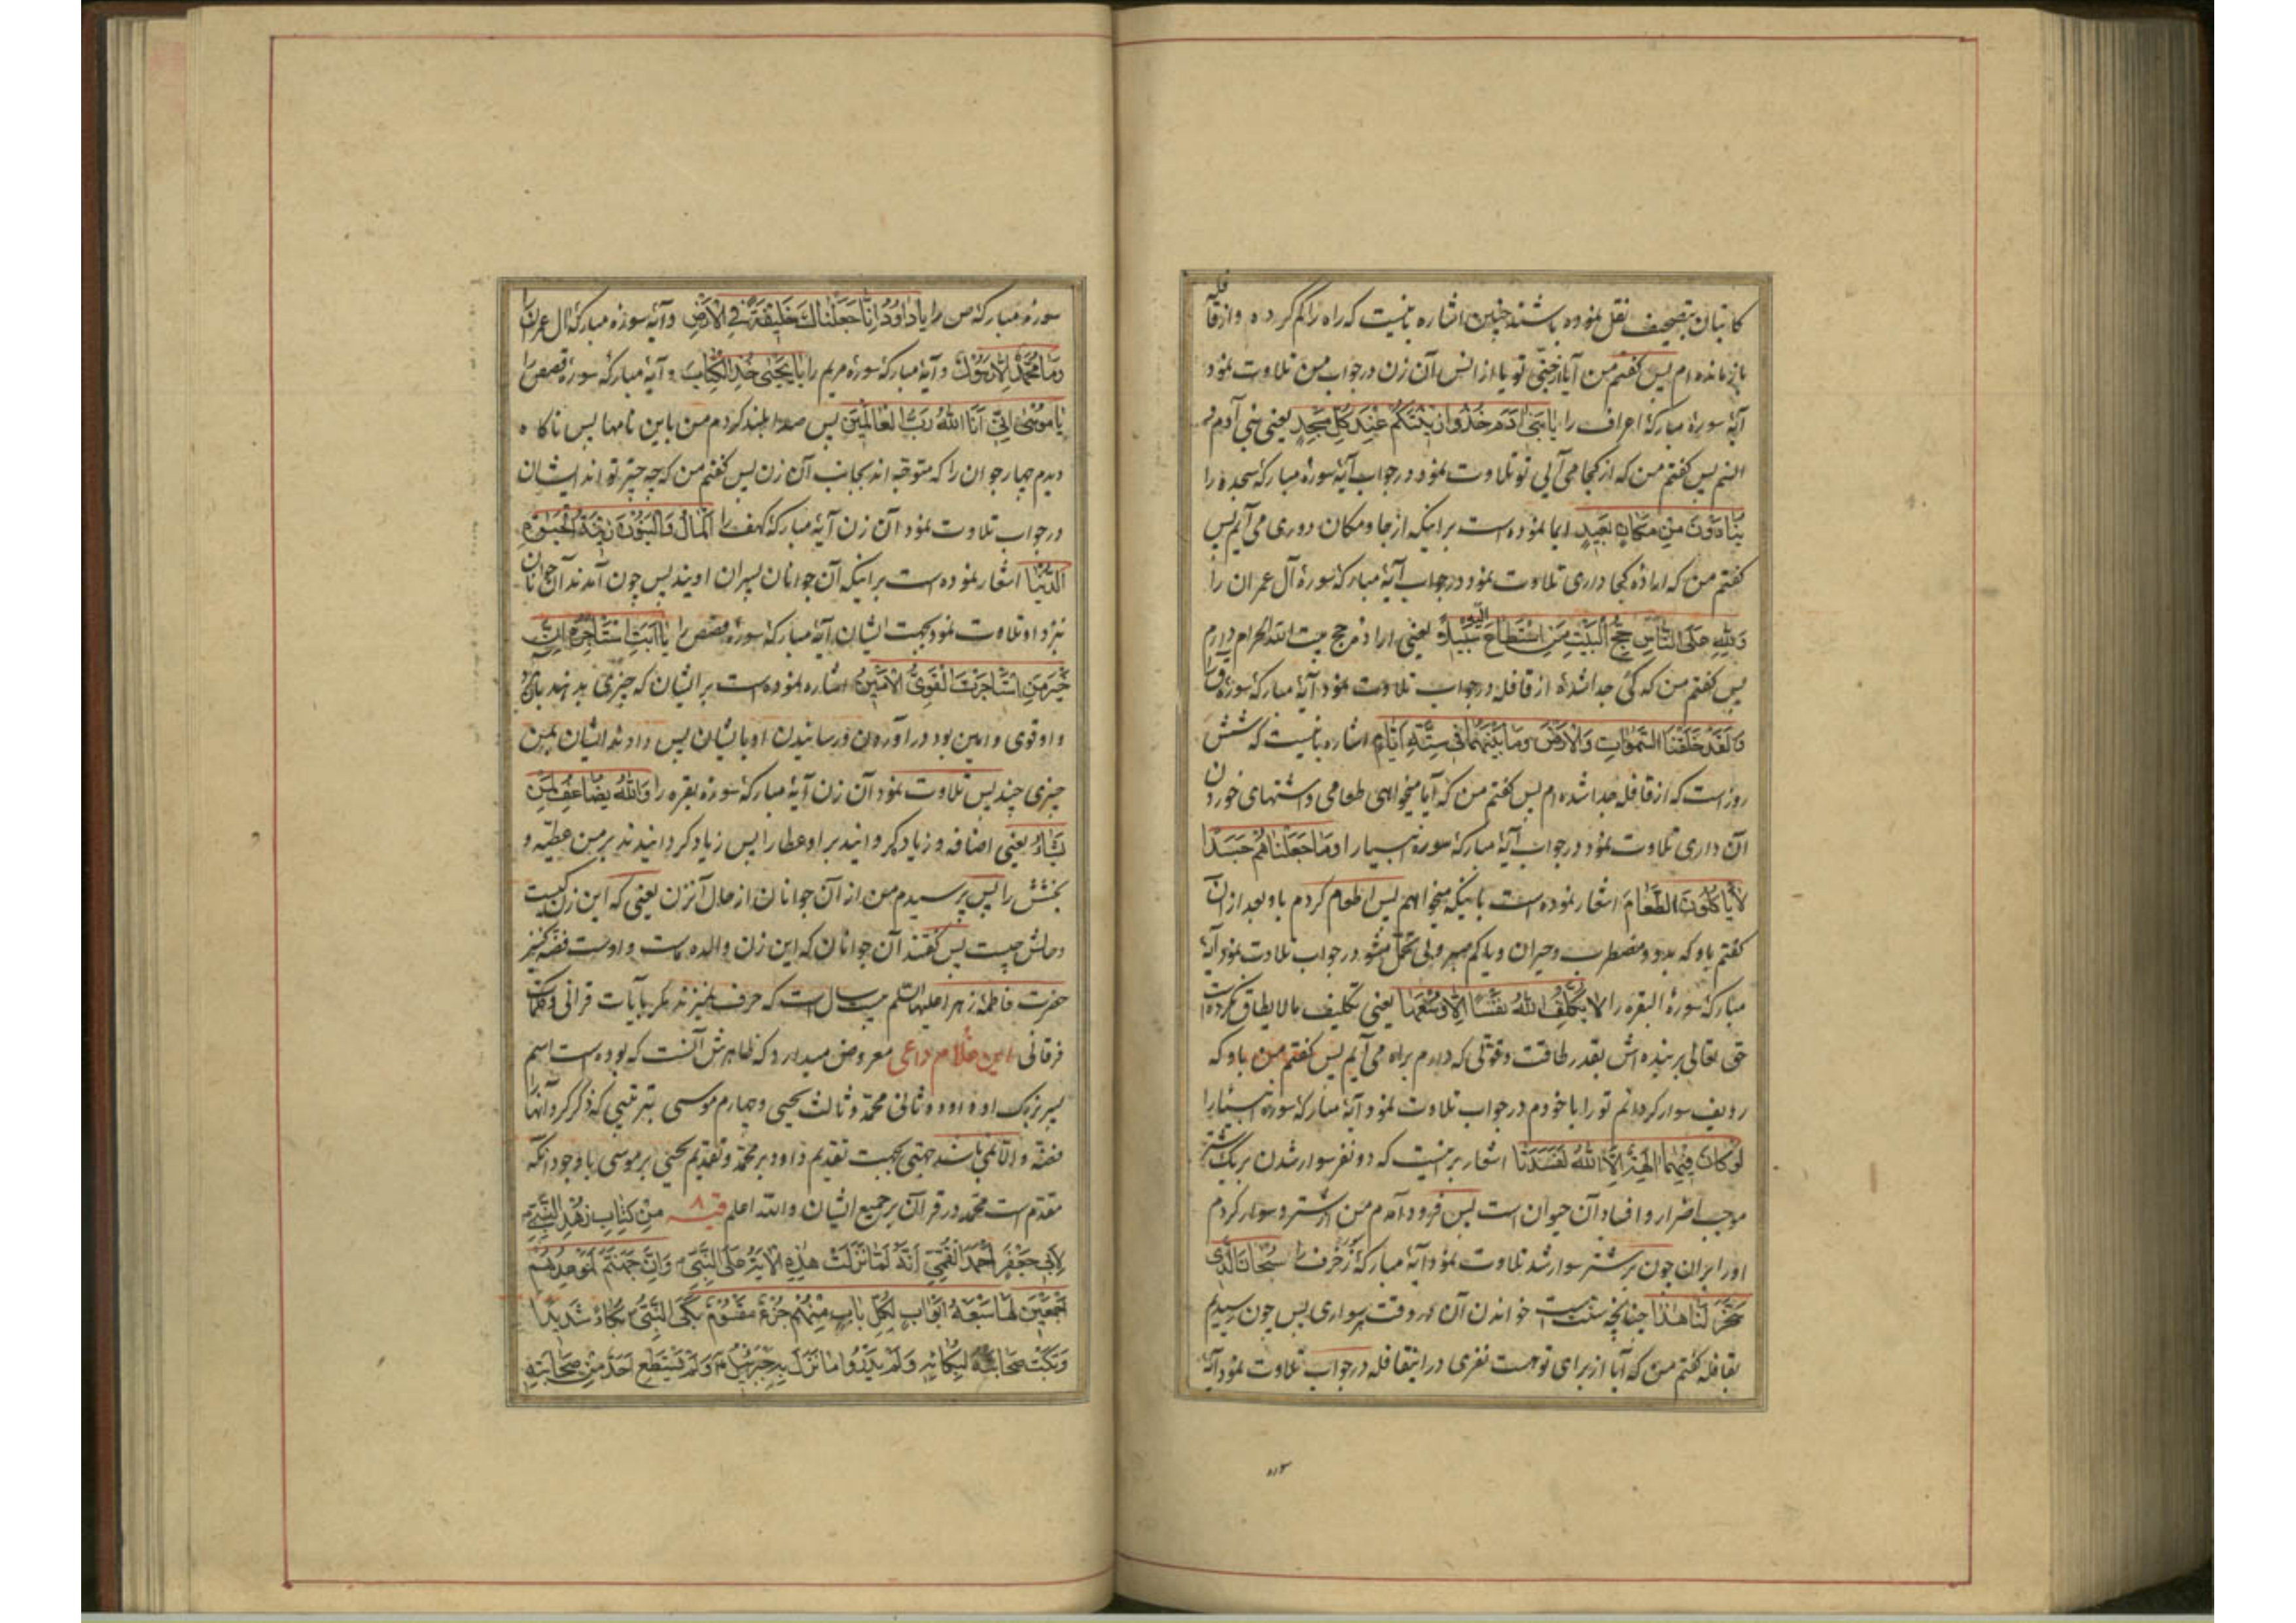 کاتبان بتصحیف نقل نموده باشند چنین اشاره بانیست که راه را گم کرده و از قافله
باز مانده‌ام پس گفتم من آیا از جنّی تو یا از انس آن زن در جواب من تلاوت نمود
آیهٔ سورهٔ مبارکهٔ اعراف را یا بَنی آدَمَ خُذُوا زینَتَکُمْ عِنْدَ کُلِّ مَسْجِدٍ یعنی بنی آدم
انسم پس گفتم من که از کجا می‌آئی تو تلاوت نمود در جواب آیهٔ سورهٔ مبارکهٔ سجده را
یُنادَوْنَ مِنْ مَکانٍ بَعیدٍ ایما نموده است بر اینکه از جا و مکان دوری می‌آیم پس
گفتم من که ارادهٔ کجا داری تلاوت نمود در جواب آیهٔ مبارکهٔ سورهٔ آل عمران را
وَلِلّٰهِ عَلَی النّاسِ حِجُّ الْبَیْتِ مَنِ اسْتَطاعَ اِلَیْهِ سَبیلاً یعنی ارادهٔ حج بیت الله الحرام دارم
پس گفتم من که کی جدا شدهٔ از قافله در جواب تلاوت نمود آیهٔ مبارکهٔ سورهٔ ق را
وَلَقَدْ خَلَقْنَا السَّمٰواتِ وَالْاَرْضَ وَما بَیْنَهُما فی سِتَّةِ اَیّامٍ اشاره بانیست که شش
روز است که از قافله جدا شده‌ام پس گفتم من که آیا میخواهی طعامی و اشتهای خوردن
آن داری تلاوت نمود در جواب آیهٔ مبارکهٔ سورهٔ انبیا را وَما جَعَلْناهُمْ جَسَداً
لا یَأْکُلُونَ الطَّعامَ اشعار نموده است باینکه میخواهم پس اطعام کردم باو بعد از آن
گفتم باو که بدو و مضطرب و حیران و یاکم مهر و بی تحمّل مشو در جواب تلاوت نمود آیهٔ
مبارکهٔ سورهٔ البقره را لا یُکَلِّفُ اللهُ نَفْساً اِلّا وُسْعَها یعنی تکلیف مالایطاق نکرده است
حق تعالی بر بنده‌اش بقدر طاقت و قوّتی که دارم براه می‌آیم پس گفتم من باو که
ردیف سوار کردانم تو را با خودم در جواب تلاوت نمود آیهٔ مبارکهٔ سورهٔ انبیا را
لَوْ کانَ فیهِما اٰلِهَةٌ اِلَّا اللهُ لَفَسَدَتا اشعار بر انیست که دو نفر سوار شدن بر یک شتر
موجب اضرار و افساد آن حیوان است پس فرود آمدم من از شتر و سوار کردم
او را بر آن چون بر شتر سوار شد تلاوت نمود آیهٔ مبارکهٔ زخرف را سُبْحانَ الَّذی
سَخَّرَ لَنا هٰذا چنانچه سنت است خواندن آن در وقت سواری پس چون رسیدیم
بقافله گفتم من که آیا از برای تو هست نفری در اینقافله در جواب تلاوت نمود آیهٔ
سورهٔ مبارکهٔ ص را یا داوُدُ اِنّا جَعَلْناکَ خَلیفَةً فِی الْاَرْضِ و آیهٔ سورهٔ مبارکهٔ آل عمران را
وَما مُحَمَّدٌ اِلّا رَسُولٌ و آیهٔ مبارکهٔ سورهٔ مریم را یا یَحْیٰی خُذِ الْکِتابَ و آیهٔ مبارکهٔ سورهٔ قصص را
یا مُوسٰی اِنّی اَنَا اللهُ رَبُّ الْعالَمینَ پس صدا بلند کردم من باین نامها پس ناکاه
دیدم چهار جوان را که متوجّه‌اند بجانب آن زن پس گفتم من که چه چیز تواند ایشان
در جواب تلاوت نمود آن زن آیهٔ مبارکهٔ کهف را اَلْمالُ وَالْبَنُونَ زینَةُ الْحَیٰوةِ
الدُّنْیا اشعار نموده است بر اینکه آن جوانان پسران اویند پس چون آمدند آن جوانان
نزد او تلاوت نمود بجهت ایشان آیهٔ مبارکهٔ سورهٔ قصص را یا اَبَتِ اسْتَأْجِرْهُ اِنَّ
خَیْرَ مَنِ اسْتَأْجَرْتَ الْقَوِیُّ الْاَمینُ اشاره نموده است بر ایشان که چیزی بدهند
و او قوی و امین بود در آوردن و رسانیدن او بایشان پس دادند ایشان بمن
چیزی چند پس تلاوت نمود آن زن آیهٔ مبارکهٔ سورهٔ بقره را وَاللهُ یُضاعِفُ لِمَنْ
یَشاءُ یعنی اضافه و زیاد کردانید بر او عطا را پس زیاد کردانیدند بر من عطیّه و
بخشش را پس پرسیدم من از آن جوانان از حال آنزن یعنی که این زن کیست
و حالش چیست پس گفتند آن جوانان که این زن والدهٔ ماست و اوست فضّه کنیز
حضرت فاطمهٔ زهرا علیها السّلام بیست سال است که حرف نمیزند مگر بآیات قرآنی و کلمات
فرقانی این غلام داعی معروض میدارد که ظاهرش آنست که بوده است اسم
پسر بزرک او داود و ثانی محمّد و ثالث یحیی و چهارم موسی بترتیبی که ذکر کرد آنها را
فضّه و الّا نمی‌باشد جهتی بجهت تقدیم داود بر محمّد و تقدیم یحیی بر موسی با وجود آنکه
مقدّم است محمّد در قرآن بر جمیع ایشان و الله اعلم فیه ۸ مِنْ کِتابِ زُهْدِ النَّبِیِّ
لِاَبی جَعْفَرٍ اَحْمَدَ الْقُمّی اَنَّهُ لَمّا نَزَلَتْ هٰذِهِ الْاٰیَةُ عَلَی النَّبِیِّ وَاِنَّ جَهَنَّمَ لَمَوْعِدُهُمْ
اَجْمَعینَ لَها سَبْعَةُ اَبْوابٍ لِکُلِّ بابٍ مِنْهُمْ جُزْءٌ مَقْسُومٌ بَکَی النَّبِیُّ بُکاءً شَدیداً
وَبَکَتْ صَحابَتُهُ لِبُکائِهِ وَلَمْ یَدْرُوا ما نَزَلَ بِهِ جَبْرَئیلُ وَلَمْ یَسْتَطِعْ اَحَدٌ مِنْ صَحابَتِهِ